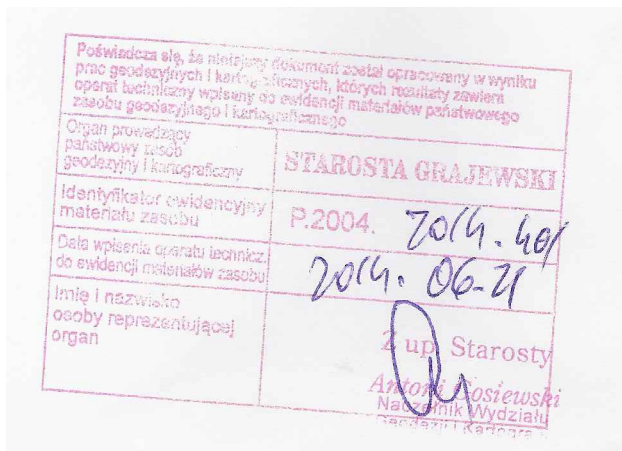 Poświadcza się, że niniejszy dokument został opracowany w wyniku
prac geodezyjnych i kartograficznych, których rezultaty zawiera
operat techniczny wpisany do ewidencji materiałów państwowego
zasobu geodezyjnego i kartograficznego
Organ prowadzący
państwowy zasób
geodezyjny i kartograficzny
STAROSTA GRAJEWSKI
Identyfikator ewidencyjny
materiału zasobu
P.2004. 2014.401
Data wpisania operatu technicz.
do ewidencji materiałów zasobu
2014.06-21
Imię i nazwisko
osoby reprezentującej
organ
Z up. Starosty
Antoni Gosiewski
Naczelnik Wydziału
Geodezji i Kartogra